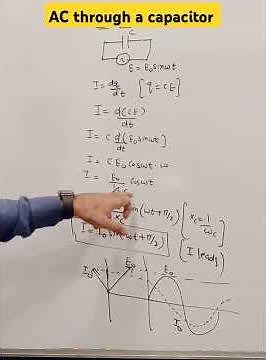 AC through a capacitor
C
E = E₀ sinωt
I = dq/dt [q = CE]
I = d(CE)/dt
I = C d[E₀ sinωt]/dt
I = C E₀ cosωt · ω
I = E₀/ cosωt
in(ωt+π/2) [x_c = 1/ωc
I = I₀ sin(ωt+π/2) I leads]
I₀ E₀ E₀
I₀